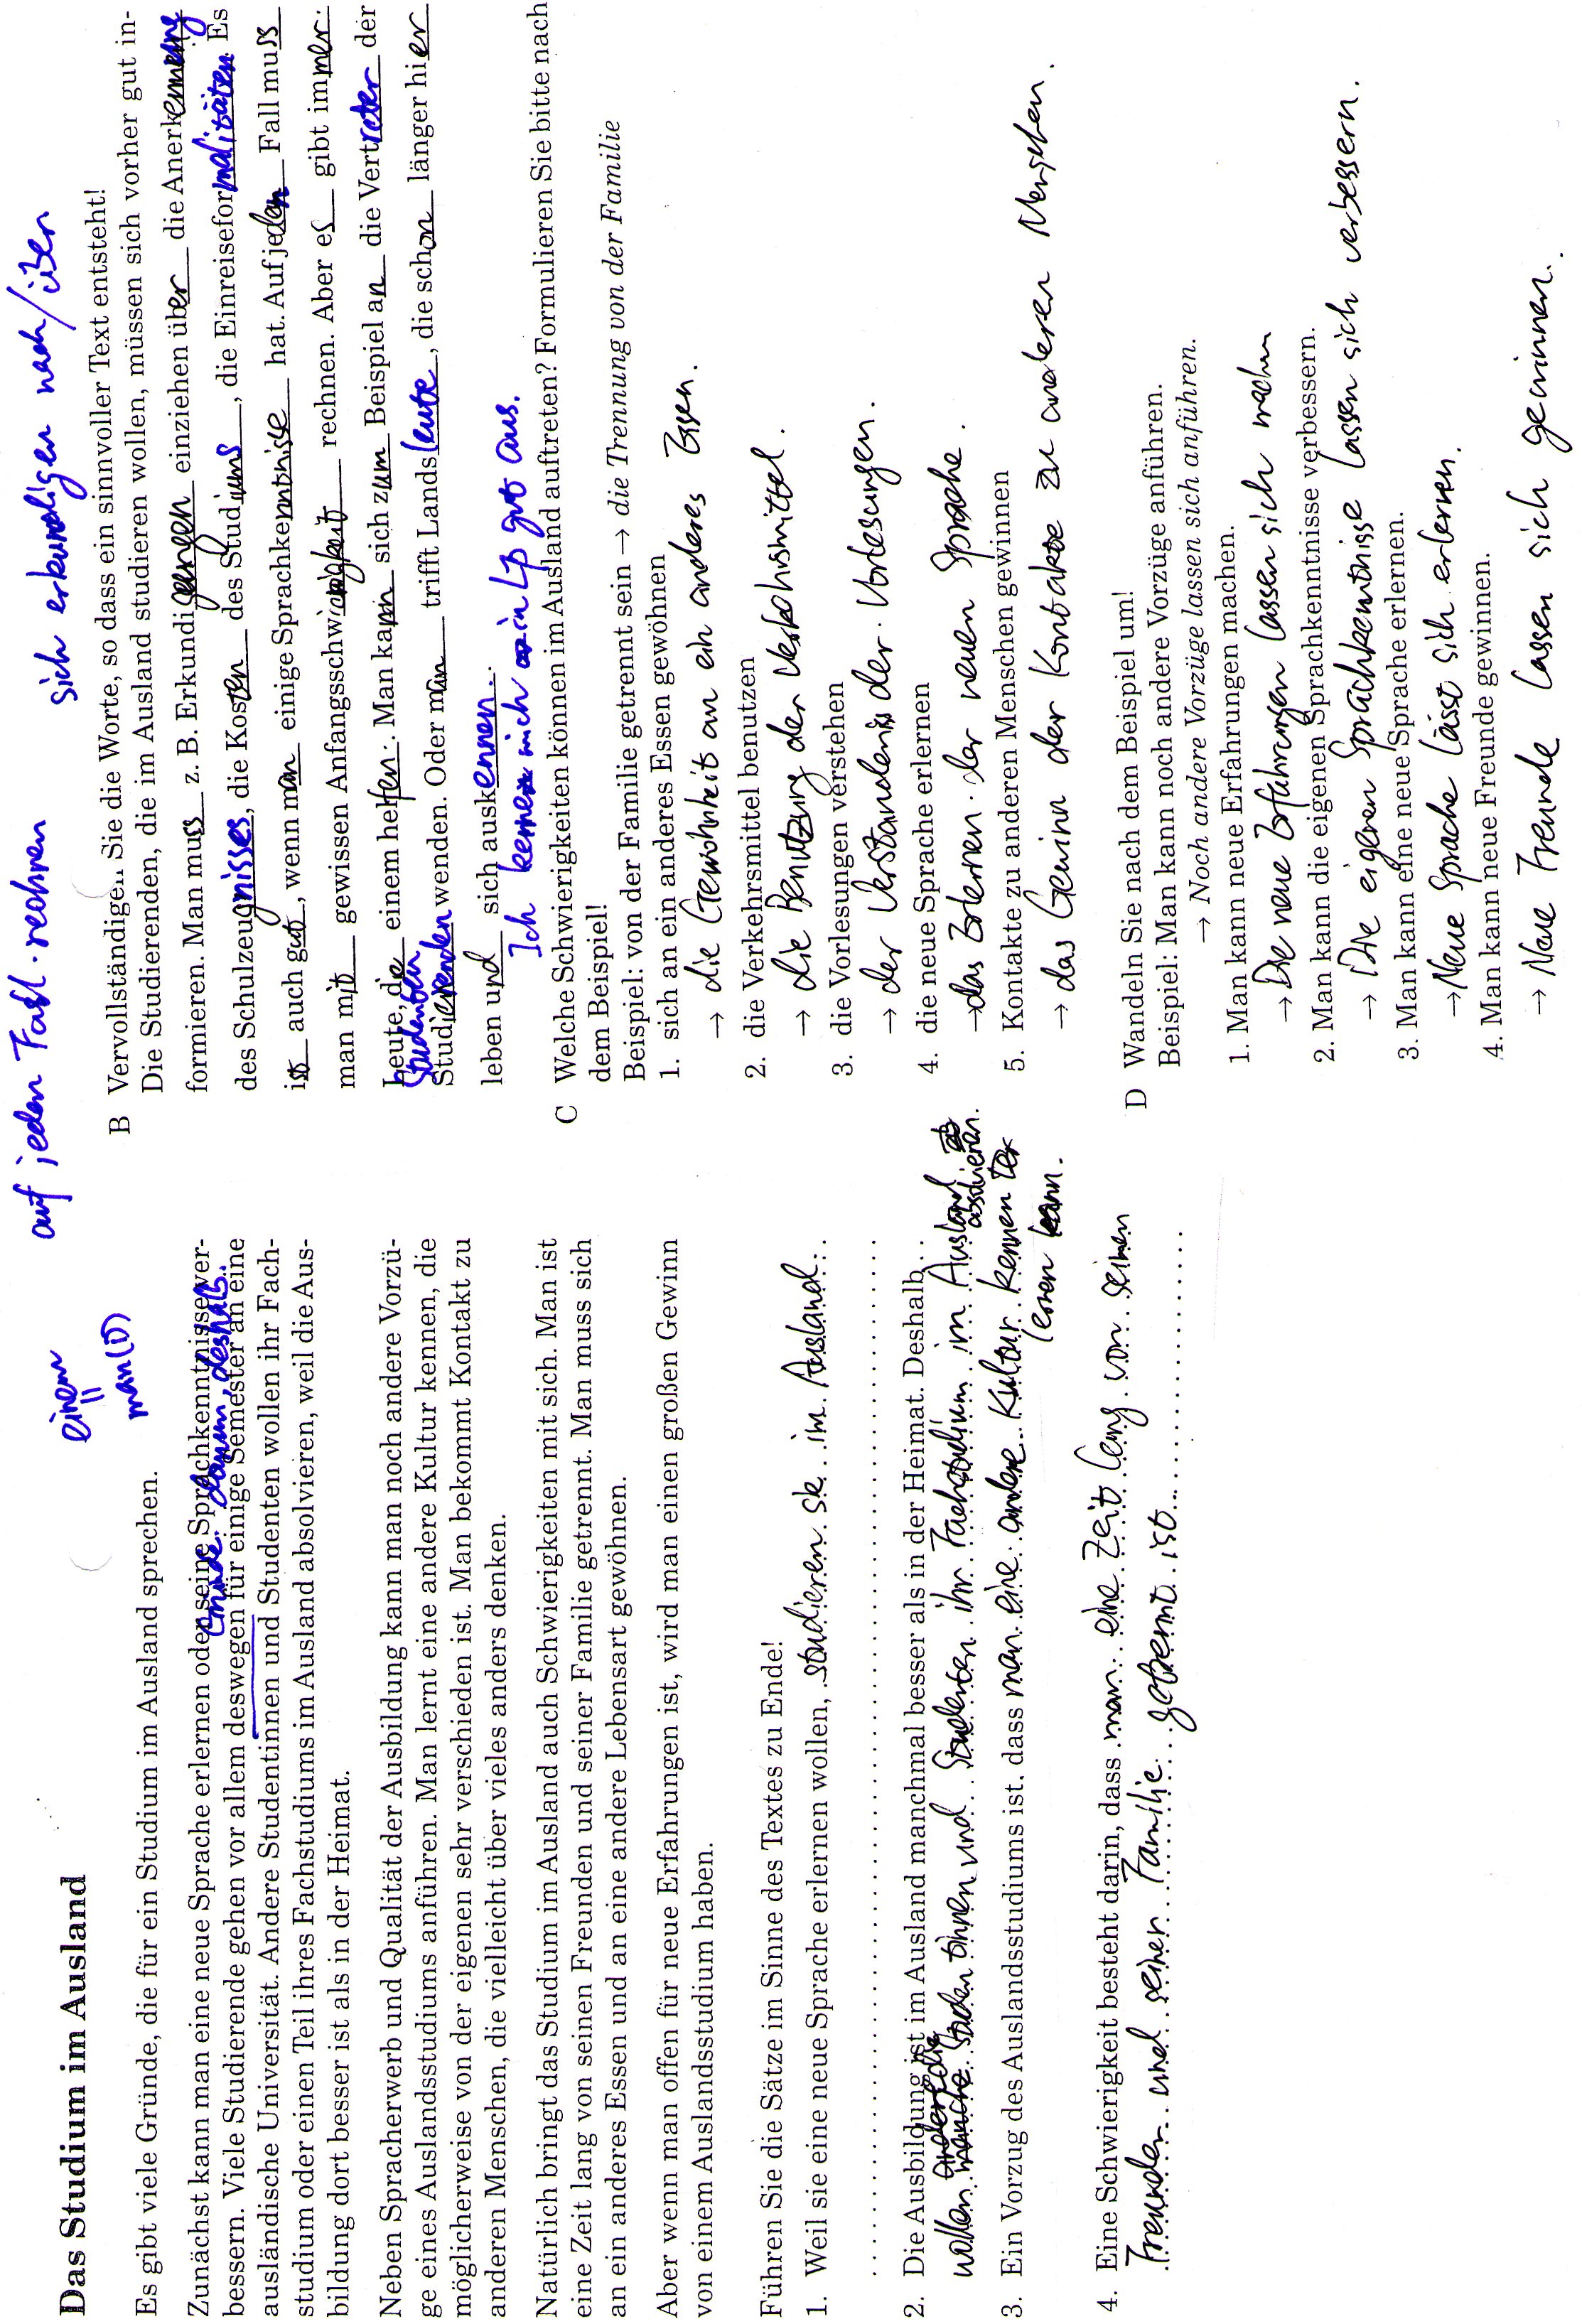 einem
=
man (i)
auf jeden Fall · rechnen
sich erkundigen nach/über
Das Studium im Ausland
Es gibt viele Gründe, die für ein Studium im Ausland sprechen.
Zunächst kann man eine neue Sprache erlernen oder seine Sprachkenntnisse ver-
darum, deshalb
bessern. Viele Studierende gehen vor allem deswegen für einige Semester an eine
ausländische Universität. Andere Studentinnen und Studenten wollen ihr Fach-
studium oder einen Teil ihres Fachstudiums im Ausland absolvieren, weil die Aus-
bildung dort besser ist als in der Heimat.
Neben Spracherwerb und Qualität der Ausbildung kann man noch andere Vorzü-
ge eines Auslandsstudiums anführen. Man lernt eine andere Kultur kennen, die
möglicherweise von der eigenen sehr verschieden ist. Man bekommt Kontakt zu
anderen Menschen, die vielleicht über vieles anders denken.
Natürlich bringt das Studium im Ausland auch Schwierigkeiten mit sich. Man ist
eine Zeit lang von seinen Freunden und seiner Familie getrennt. Man muss sich
an ein anderes Essen und an eine andere Lebensart gewöhnen.
Aber wenn man offen für neue Erfahrungen ist, wird man einen großen Gewinn
von einem Auslandsstudium haben.
Führen Sie die Sätze im Sinne des Textes zu Ende!
1. Weil sie eine neue Sprache erlernen wollen, studieren sie im Ausland.
2. Die Ausbildung ist im Ausland manchmal besser als in der Heimat. Deshalb
wollen manche Studentinnen und Studenten ihr Fachstudium im Ausland
absolvieren.
3. Ein Vorzug des Auslandsstudiums ist, dass man eine andere Kultur kennen
lernen kann.
4. Eine Schwierigkeit besteht darin, dass man eine Zeit lang von seinen
Freunden und seiner Familie getrennt ist.
B Vervollständigen Sie die Worte, so dass ein sinnvoller Text entsteht!
Die Studierenden, die im Ausland studieren wollen, müssen sich vorher gut in-
formieren. Man muss z. B. Erkundigungen einziehen über die Anerkennung
des Schulzeugnisses, die Kosten des Studiums, die Einreiseformalitäten. Es
ist auch gut, wenn man einige Sprachkenntnisse hat. Auf jeden Fall muss
man mit gewissen Anfangsschwierigkeit rechnen. Aber es gibt immer
Leute, die einem helfen. Man kann sich zum Beispiel an die Vertreter der
Studenten
Studierenden wenden. Oder man trifft Landsleute, die schon länger hier
leben und sich auskennen.
Ich kenne mich in Lp gut aus.
C Welche Schwierigkeiten können im Ausland auftreten? Formulieren Sie bitte nach
dem Beispiel!
Beispiel: von der Familie getrennt sein → die Trennung von der Familie
1. sich an ein anderes Essen gewöhnen
→ die Gewohnheit an ein anderes Essen.
2. die Verkehrsmittel benutzen
→ die Benutzung der Verkehrsmittel.
3. die Vorlesungen verstehen
→ der Verständnis der Vorlesungen.
4. die neue Sprache erlernen
→ das Erlernen der neuen Sprache.
5. Kontakte zu anderen Menschen gewinnen
→ das Gewinn der Kontakte zu anderen Menschen.
D Wandeln Sie nach dem Beispiel um!
Beispiel: Man kann noch andere Vorzüge anführen.
→ Noch andere Vorzüge lassen sich anführen.
1. Man kann neue Erfahrungen machen.
→ Die neue Erfahrungen lassen sich machen
2. Man kann die eigenen Sprachkenntnisse verbessern.
→ Die eigenen Sprachkenntnisse lassen sich verbessern.
3. Man kann eine neue Sprache erlernen.
→ Neue Sprache lässt sich erlernen.
4. Man kann neue Freunde gewinnen.
→ Neue Freunde lassen sich gewinnen.